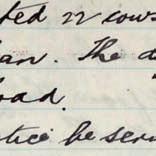 ted 22 cows
an. The d
oad.
tice be serv